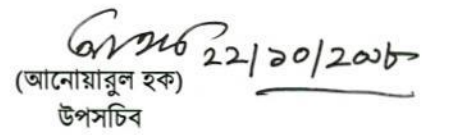 ২২/১০/২০১৮
(আনোয়ারুল হক)
উপসচিব